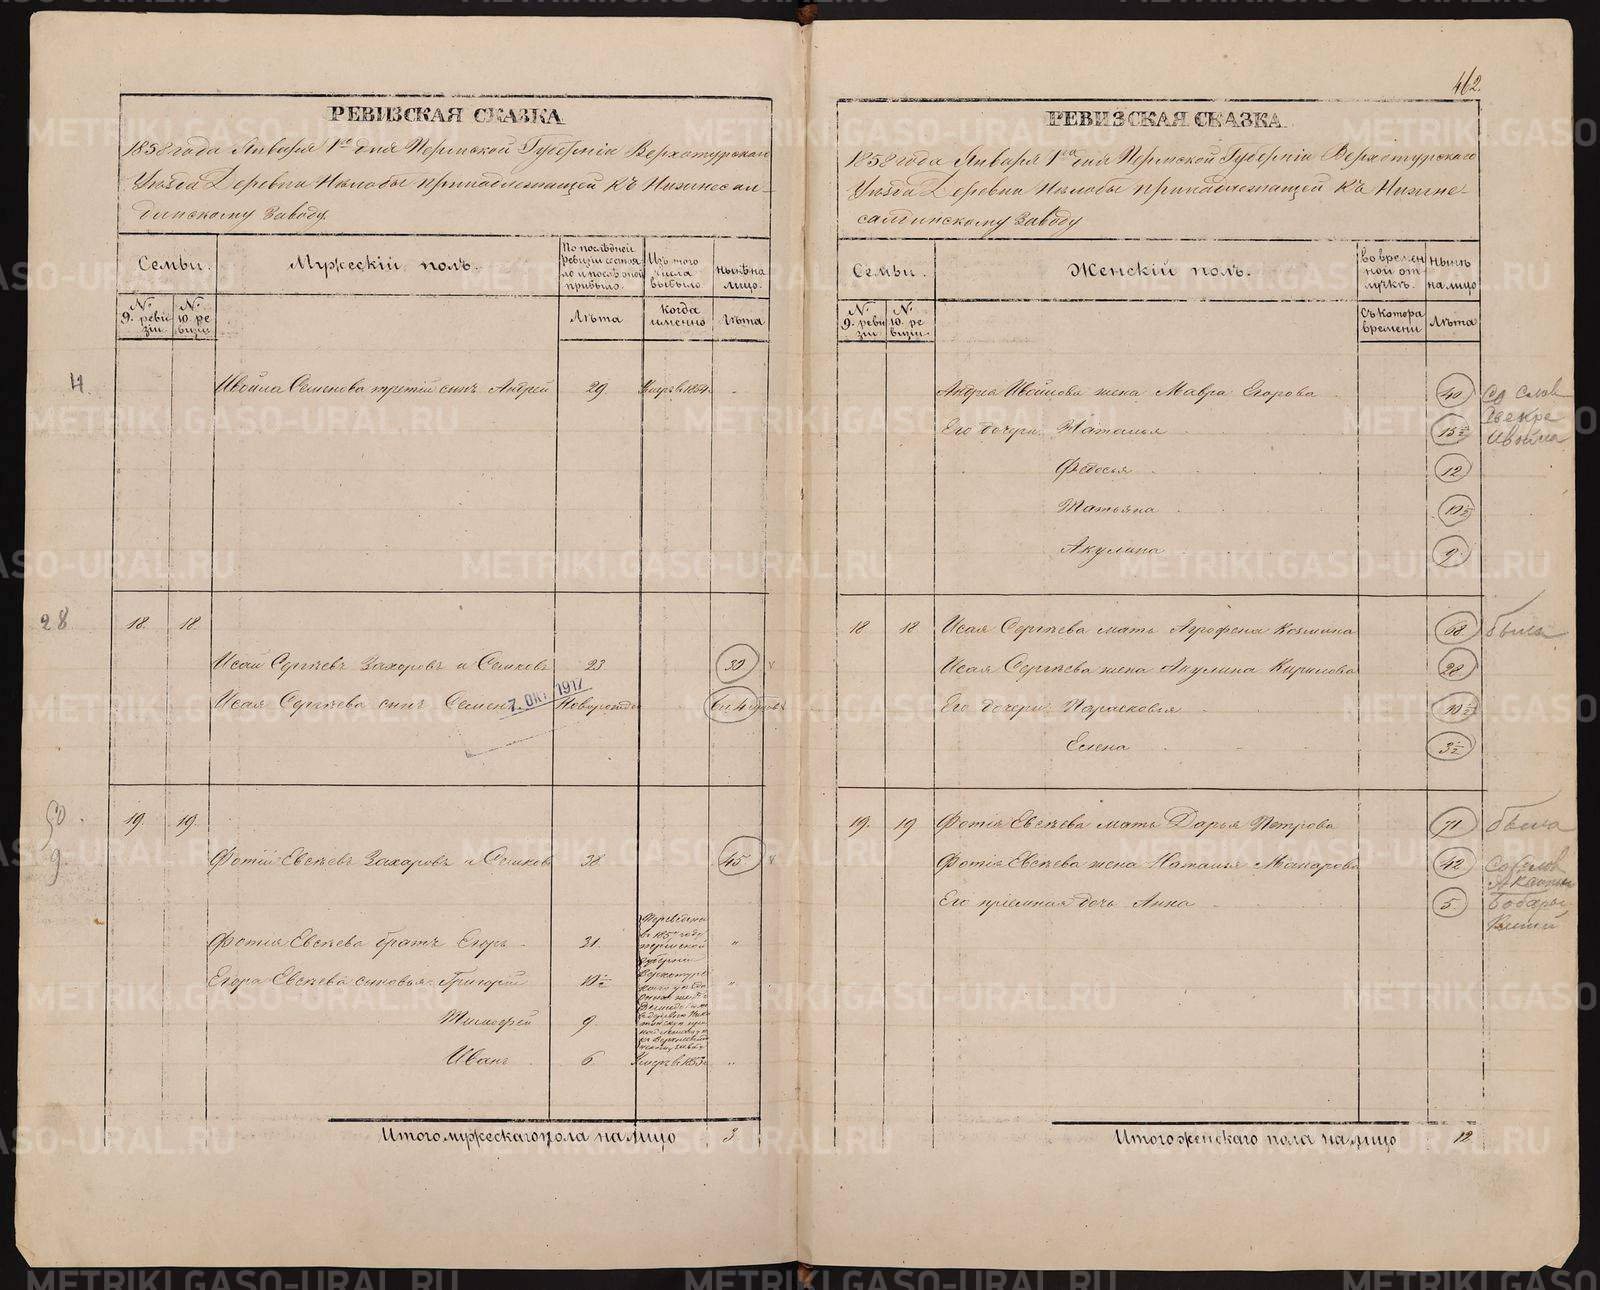 РЕВИЗСКАЯ СКАЗКА
1858 года Января 1го дня Пермской Губерніи Верхотурскаго
Уѣзда Деревни Нѣлобы принадлежащей къ Нижнесал-
динскому Заводу
Семьи. Мужескій полъ. По послѣдней ревизіи состояло и послѣ оной прибыло. Изъ того числа выбыло Нынѣ на лицо.
N. 9. ревизіи N. 10. ревизіи Лѣта Когда именно Лѣта
Ивойла Семенова третій сынъ Андрей 29. Умеръ в 1854
28
18. 18.
Исай Сергѣевъ Захаровъ и Семковъ 23 32
Исая Сергѣева сынъ Семенъ Новорожде
7. ОКТ. 1917
19. 19.
Фотій Евсѣевъ Захаровъ и Семковъ 38 45
Фотія Евсѣева братъ Егоръ 31.
Егора Евсѣева сыновья Григорій 10½
Тимофей 9
Иванъ 6. Умеръ в 1855
Итого мужескаго пола на лицо 3.
462.
РЕВИЗСКАЯ СКАЗКА
1858 года Января 1го дня Пермской Губерніи Верхотурскаго
Уѣзда Деревни Нѣлобы принадлежащей къ Нижне-
салдинскому Заводу
Семьи. Женскій полъ. Во временной отлучкѣ. Нынѣ на лицо
N. 9. ревизіи N. 10. ревизіи Съ котора времени Лѣта
Андрея Ивойлова жена Мавра Егорова 40
Его дочери Наталья 15½
Федосья 12
Татьяна 10½
Акулина 9.
18 18 Исая Сергѣева мать Агрофена Козмина 68 была
Исая Сергѣева жена Акулина Кирилова 28
Его дочери Парасковья 10½
Елена 3½
19. 19 Фотія Евсѣева мать Дарья Петрова 71 была
Фотія Евсѣева жена Наталья Макарова 42
Его пріемная дочь Анна 5.
Итого женскаго пола на лицо 12.
METRIKI.GASO-URAL.RU